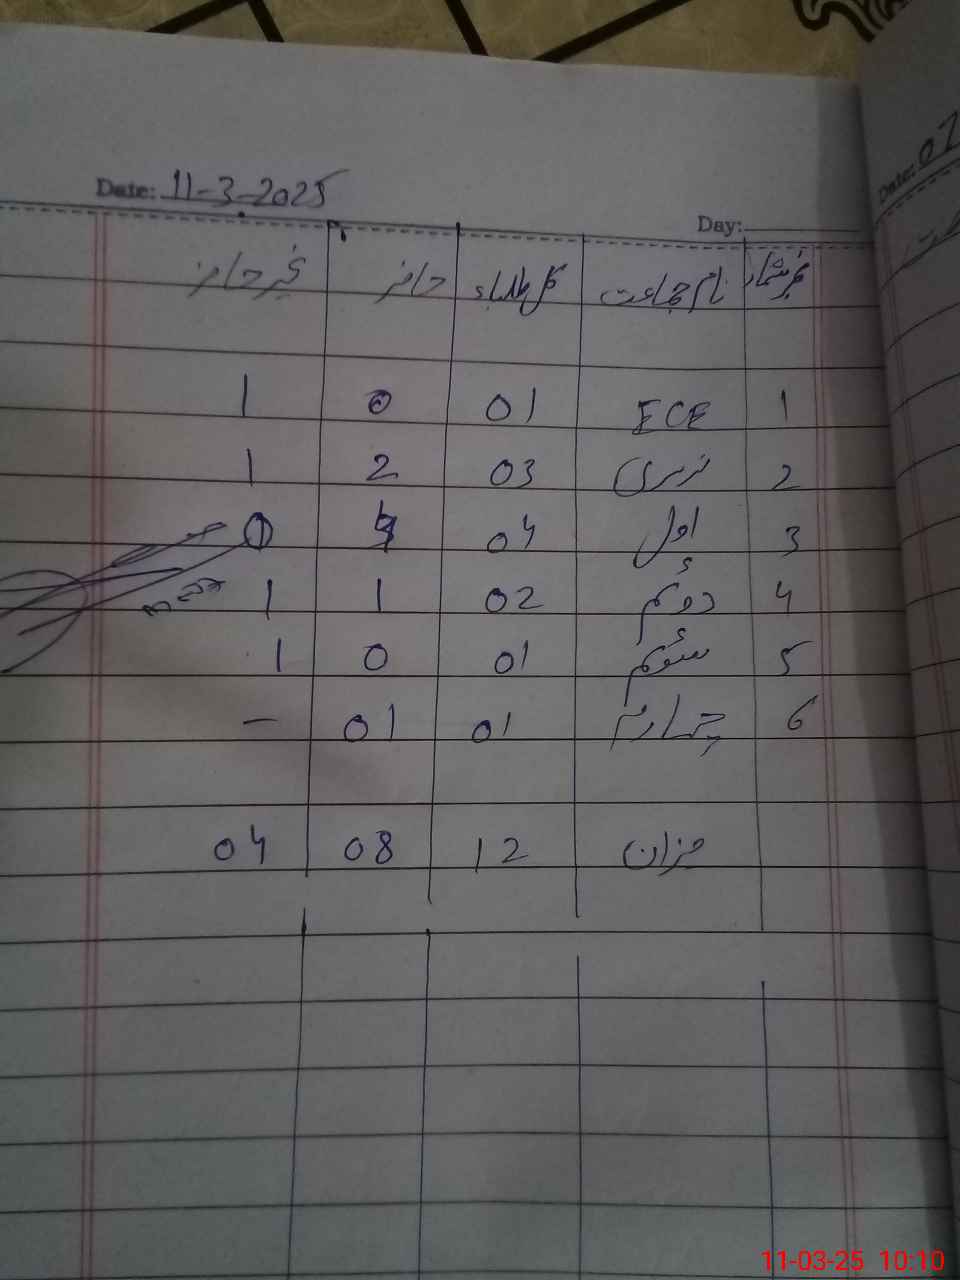 Date: 11-3-2025
Day:
نمبر شمار نام جماعت کل طلباء حاضر غیر حاضر
1 ECE 01 0 1
2 نرسری 03 2 1
3 اول 04 4 0
4 دوئم 02 1 1
5 سوئم 01 0 1
6 چہارم 01 01 –
میزان 12 08 04
Date: 07
11-03-25 10:10